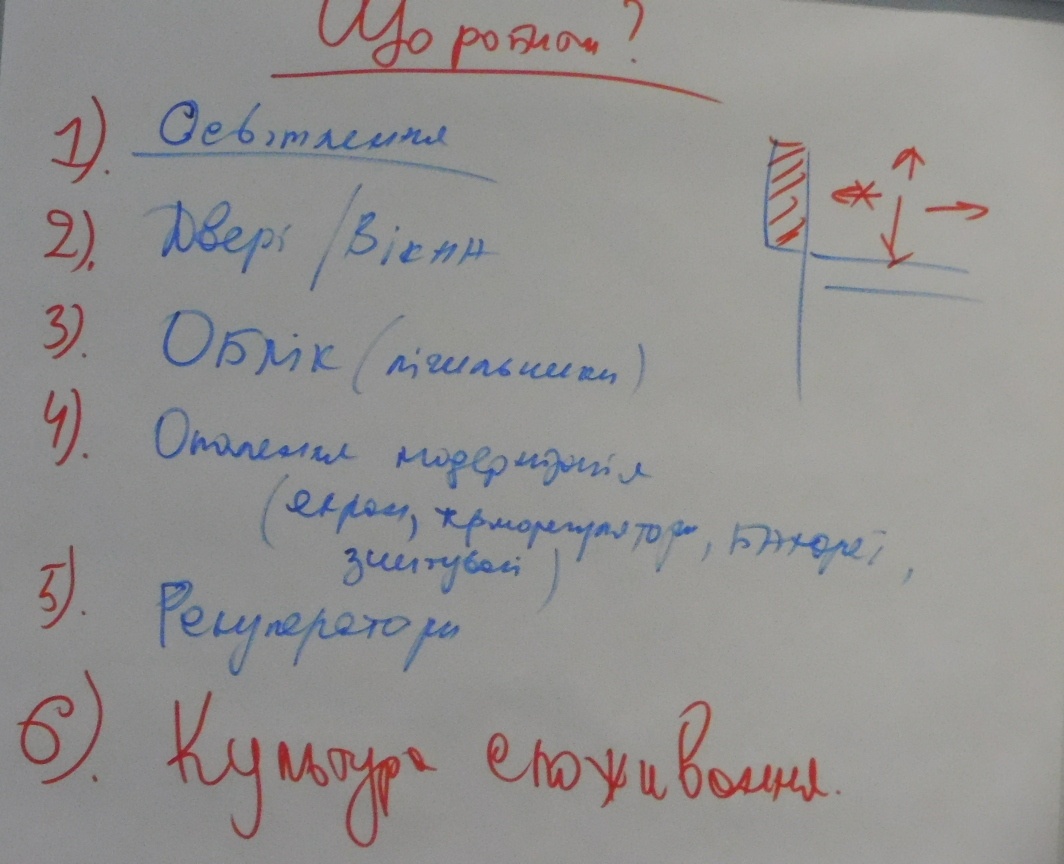 Що робити?
1). Освітлення
2). Двері / Вікна
3). Облік (лічильники)
4). Опалення модернізація
(екрани, терморегулятори, батареї,
)
5). Рекуператори
6). Культура споживання.